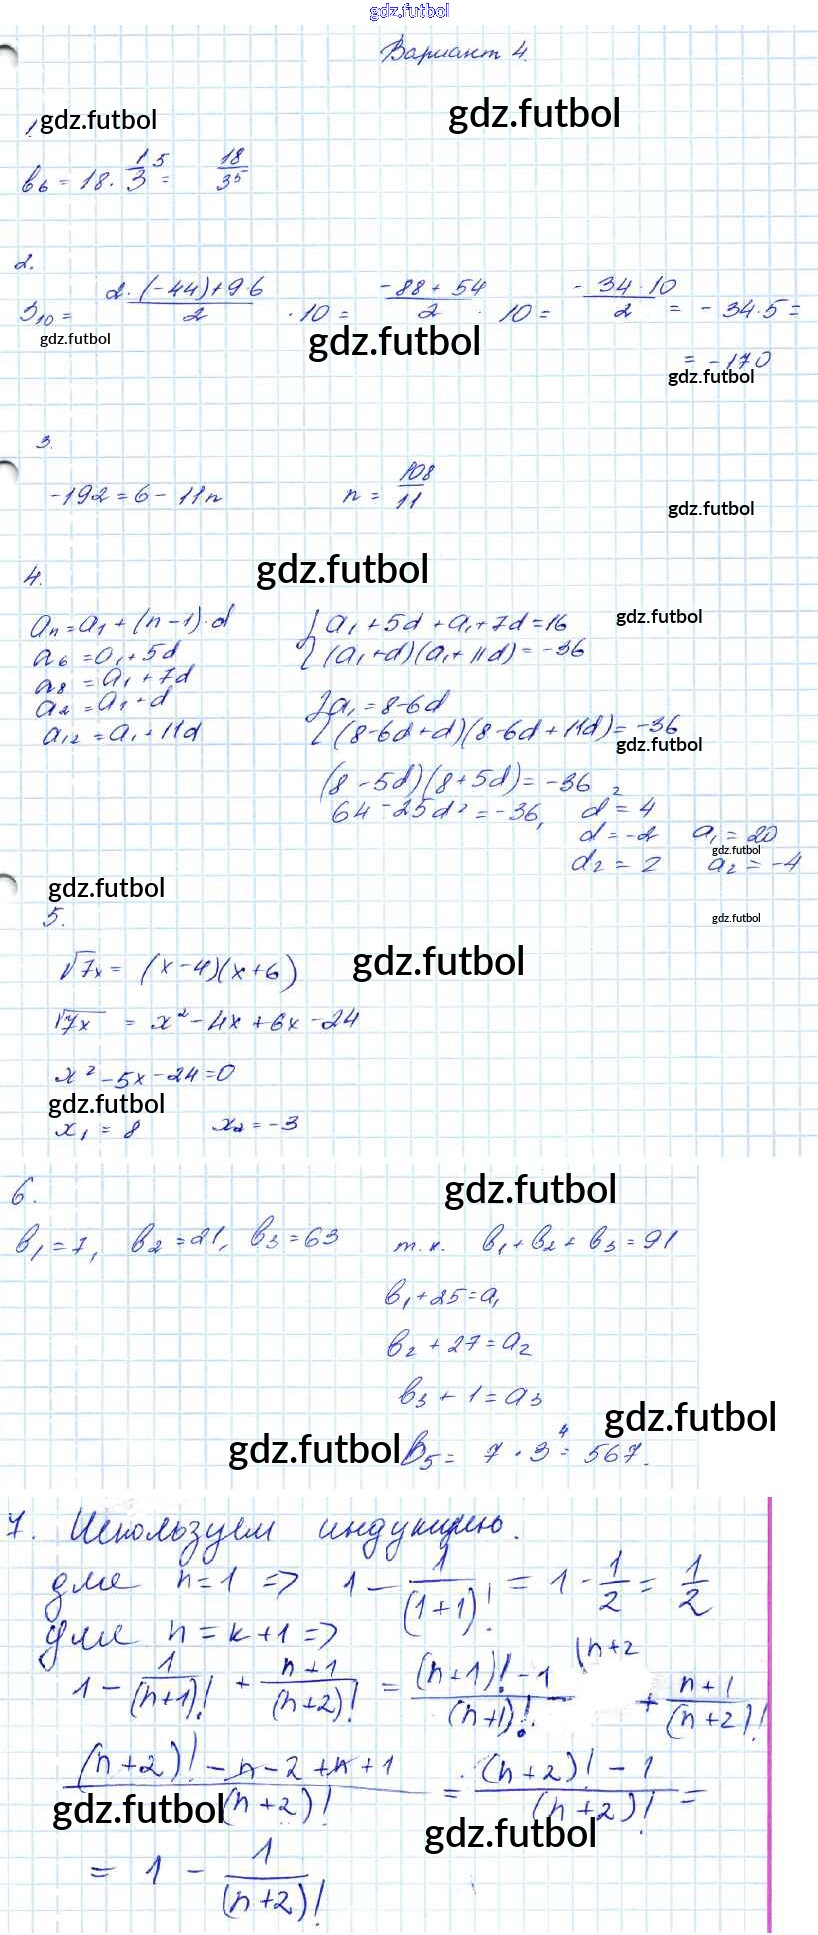 gdz.futbol
Вариант 4.
1. gdz.futbol gdz.futbol
b₆ = 18 · 1/3⁵ = 18/3⁵
2.
S₁₀ = (2·(-44)+9·6)/2 · 10 = (-88+54)/2 · 10 = (-34·10)/2 = -34·5 =
gdz.futbol gdz.futbol
= -170
gdz.futbol
3.
-192 = 6 - 11n n = 108/11
gdz.futbol
gdz.futbol
4.
aₙ = a₁ + (n-1)·d { a₁ + 5d + a₁ + 7d = 16 gdz.futbol
a₆ = a₁ + 5d { (a₁+d)(a₁+11d) = -36
a₈ = a₁ + 7d
a₂ = a₁ + d { a₁ = 8-6d
a₁₂ = a₁ + 11d { (8-6d+d)(8-6d+11d) = -36
gdz.futbol
(8-5d)(8+5d) = -36
64 - 25d² = -36, d² = 4
d = -2 a₁ = 20
gdz.futbol
d₂ = 2 a₂ = -4
gdz.futbol
5. gdz.futbol
√7x = (x-4)(x+6) gdz.futbol
√7x = x² - 4x + 6x - 24
x² - 5x - 24 = 0
gdz.futbol
x₁ = 8 x₂ = -3
6. gdz.futbol
b₁ = 7, b₂ = 21, b₃ = 63 т.к. b₁ + b₂ + b₃ = 91
b₁ + 25 = a₁
b₂ + 27 = a₂
b₃ + 1 = a₃
gdz.futbol
gdz.futbol b₅ = 7 · 3⁴ = 567.
7. Используем индукцию.
для n = 1 => 1 - 1/(1+1)! = 1 - 1/2 = 1/2
для n = k+1 =>
1 - 1/(n+1)! + (n+1)/(n+2)! = ((n+1)! - 1)/(n+1)! (n+2 + (n+1)/(n+2)!
((n+2)! - n - 2 + n + 1)/(n+2)! = ((n+2)! - 1)/(n+2)! =
gdz.futbol gdz.futbol
= 1 - 1/(n+2)!